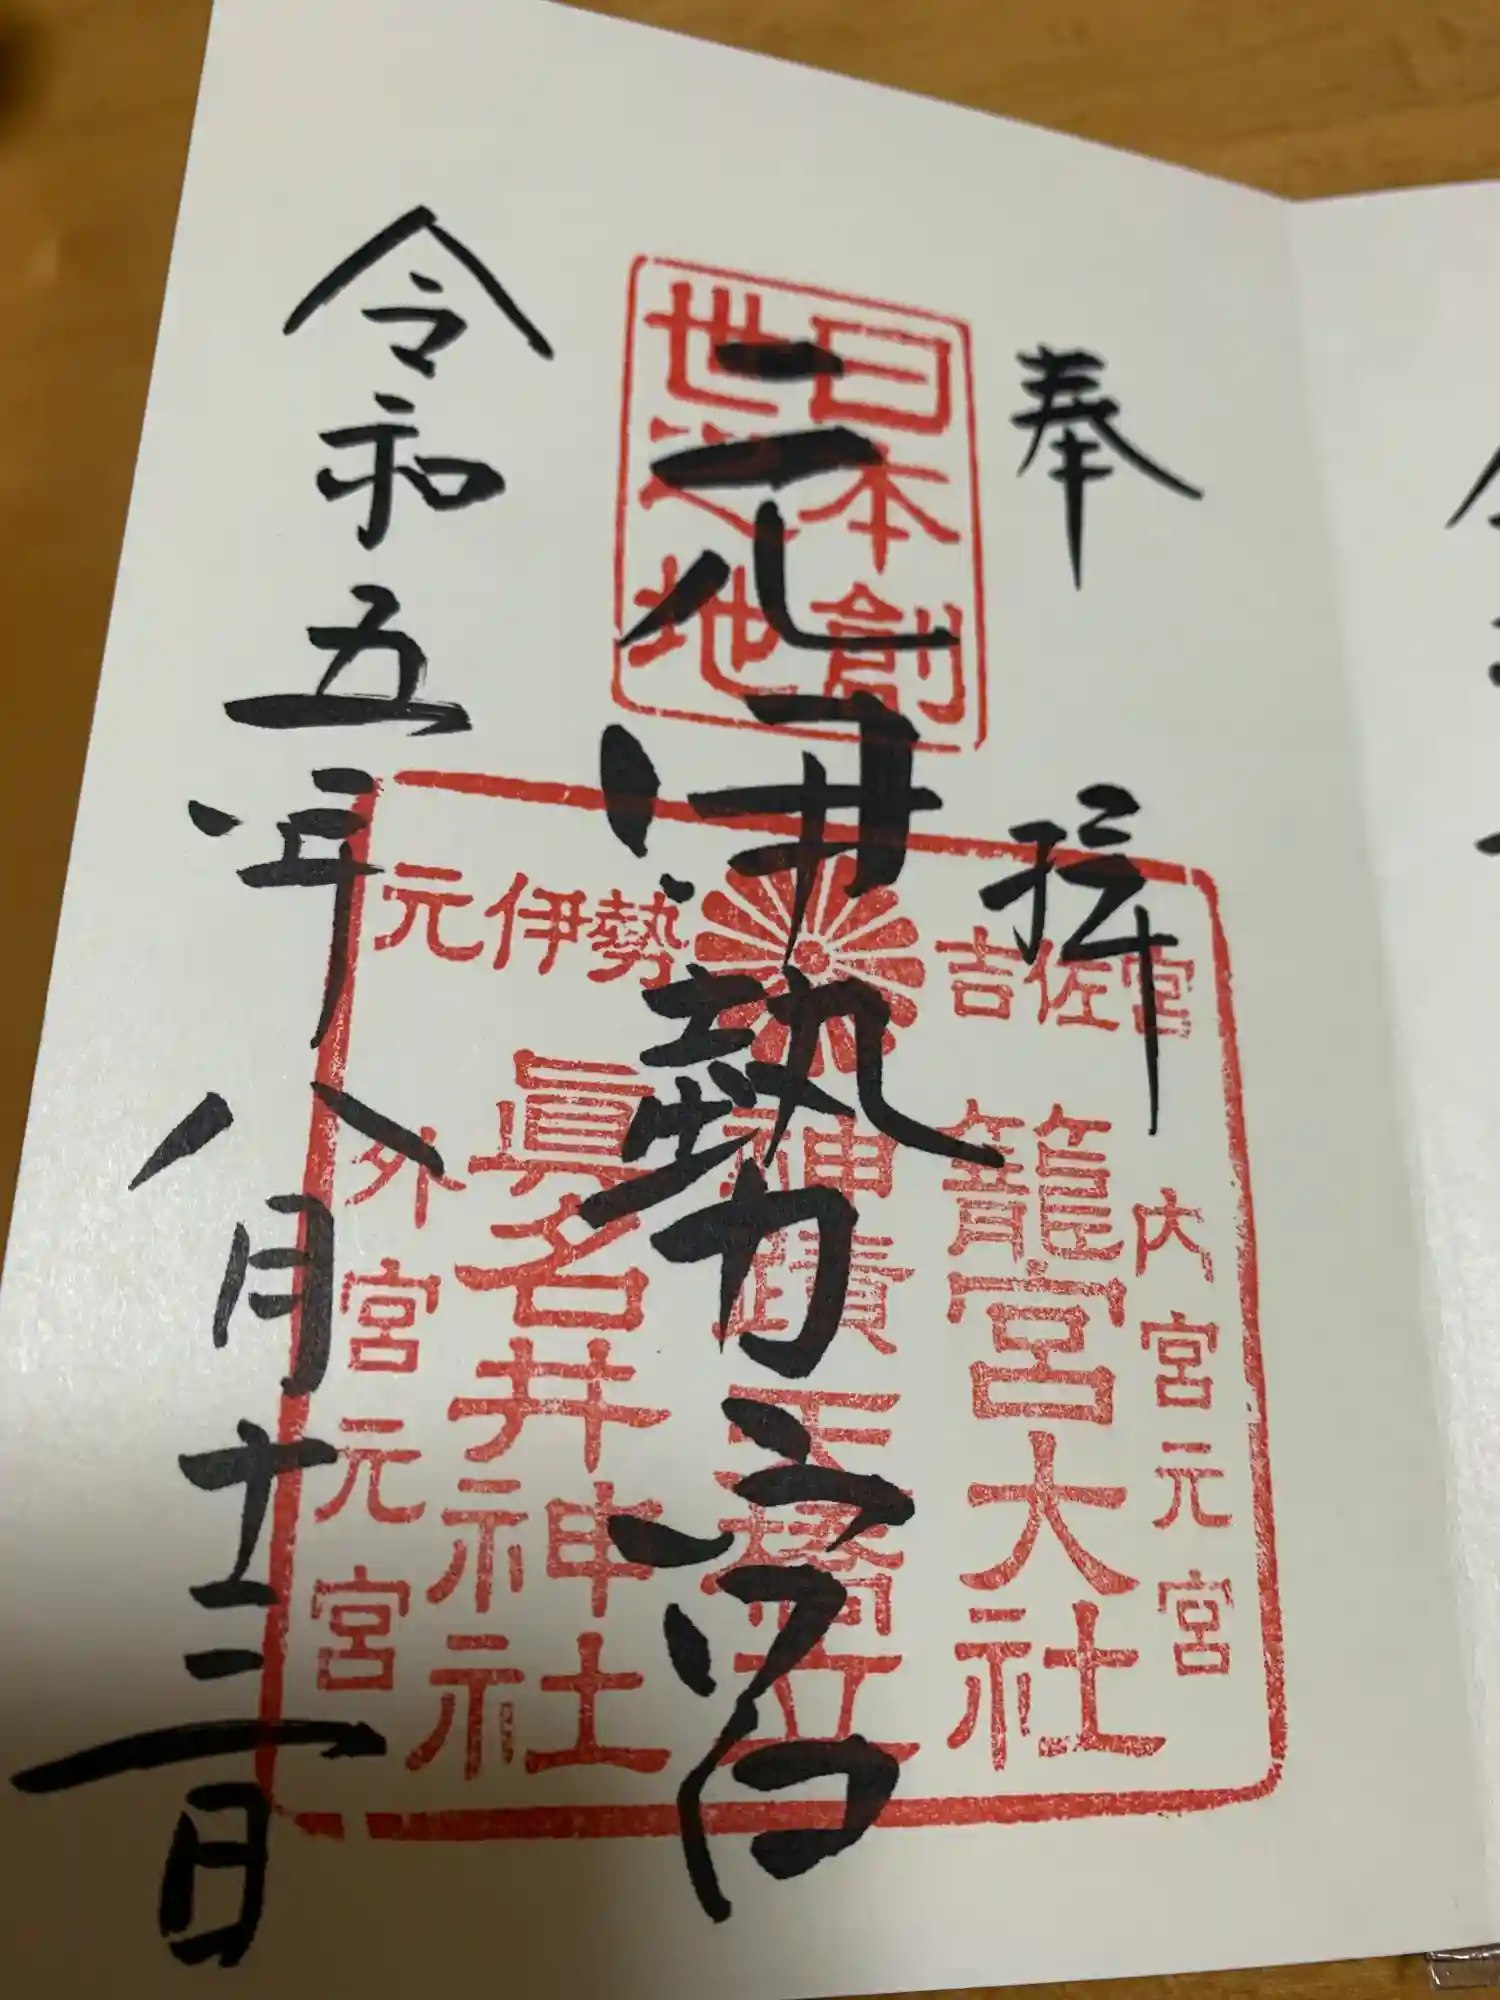 奉拝
日本創
世之地
元伊勢宮
吉佐宮
元伊勢
内宮元宮
籠宮大社
神蹟天橋立
眞名井神社
外宮元宮
令和五年八月十三日